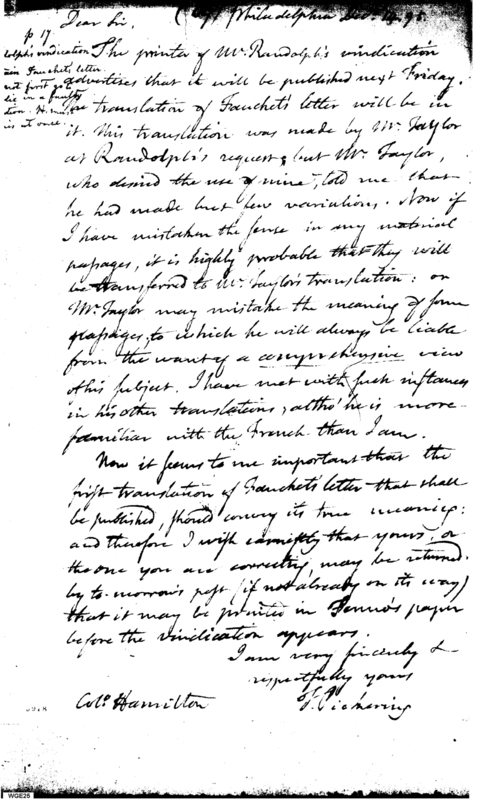 (Copy) Philadelphia Dec. 14. 95.
Dear Sir,
p 17.
dolph's vindication
Fauchet's letter.
not first go
lie in a faulty
is at once.
The printer of Mr. Randolph's vindication
advertises that it will be published next Friday.
translation of Fauchet's letter will be in
it. This translation was made by Mr. Taylor
at Randolph's request; but Mr. Taylor,
who desired the use of mine, told me that
he had made but few variations. Now if
I have mistaken the sense in any material
passages, it is highly probable that they will
be transferred to Mr. Taylor's translation: or
Mr. Taylor may mistake the meaning of some
passages, to which he will always be liable
from the want of a comprehensive view
of his subject. I have met with such instances
in his other translations; altho' he is more
familiar with the French than I am.
Now it seems to me important that the
first translation of Fauchet's letter that shall
be published, should convey its true meaning:
and therefore I wish earnestly that yours, or
the one you are correcting, may be returned
by to-morrow's post (if not already on its way)
that it may be printed in Fenno's paper
before the vindication appears.
I am very sincerely &
respectfully yours
T. Pickering
Colo. Hamilton
WGE25